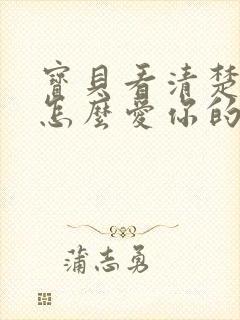 寶貝看清楚
怎麼愛你的
蒲志勇